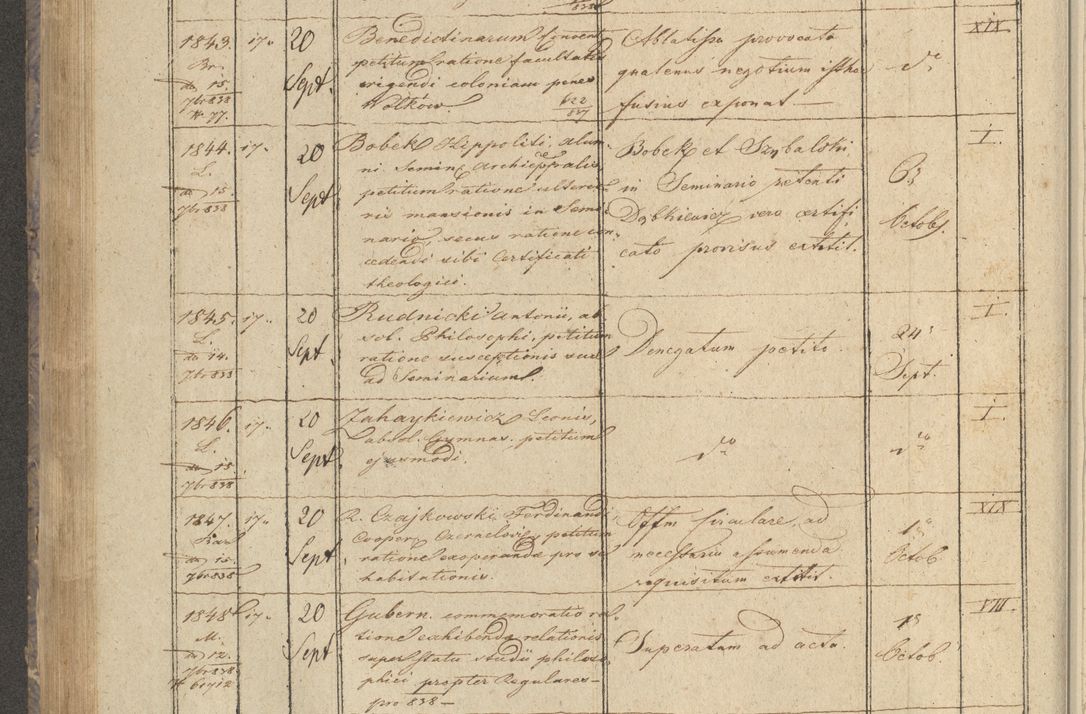 1843. 17.
Br.
do 15.
7br 838
# 77.
20
Sept.
Benedictinarum
petitum ratione facultatis
erigendi coloniam penes
Wołków 622/837
Abbatissa provocata
quatenus negotium isthoc
fusius exponat.—
do
XIX.
1844. 17.
L.
do 15
7br 838
20
Sept.
Bobek Hippoliti, alum-
ni Semin. Archieppalis,
petitum ratione ulterio
ris mansionis in Semi-
nario, secus ratione con-
cedendi sibi Certificati
theologici.
Bobek et Szybalski
in Seminario retenti
Dąbkiewicz vero certifi
cato provisus extitit.
Octob.
I.
1845. 17.
L.
do 14.
7br 838
20
Sept.
Rudnicki Antonii, ab-
sol. Philosophi, petitum
ratione susceptionis sui
ad Seminarium.
Denegatum petiti.
24
Sept.
I.
1846. 17.
L.
do 15
7br 838
20
Sept.
Zahaykiewicz Leonis,
absol. Gymnas. petitum
ejusmodi.
do
do
I.
1847. 17.
do 15.
7br 838
20
Sept.
R. Czajkowski Ferdinandi
Cooper. petitum
ratione exoperandae pro se
habitationis.
Offm Circulare, ad
necessaria assumenda
requisitum extitit.
1
Octob.
XIX
1848 17.
M.
do 12.
7br 838.
# 61712
20
Sept.
Gubern. commemoratio ra-
tione exhibendae relationis
super Statu studii philoso-
phici propter Regulares—
pro 838—
Superatum ad acta.
Octob.
VIII.